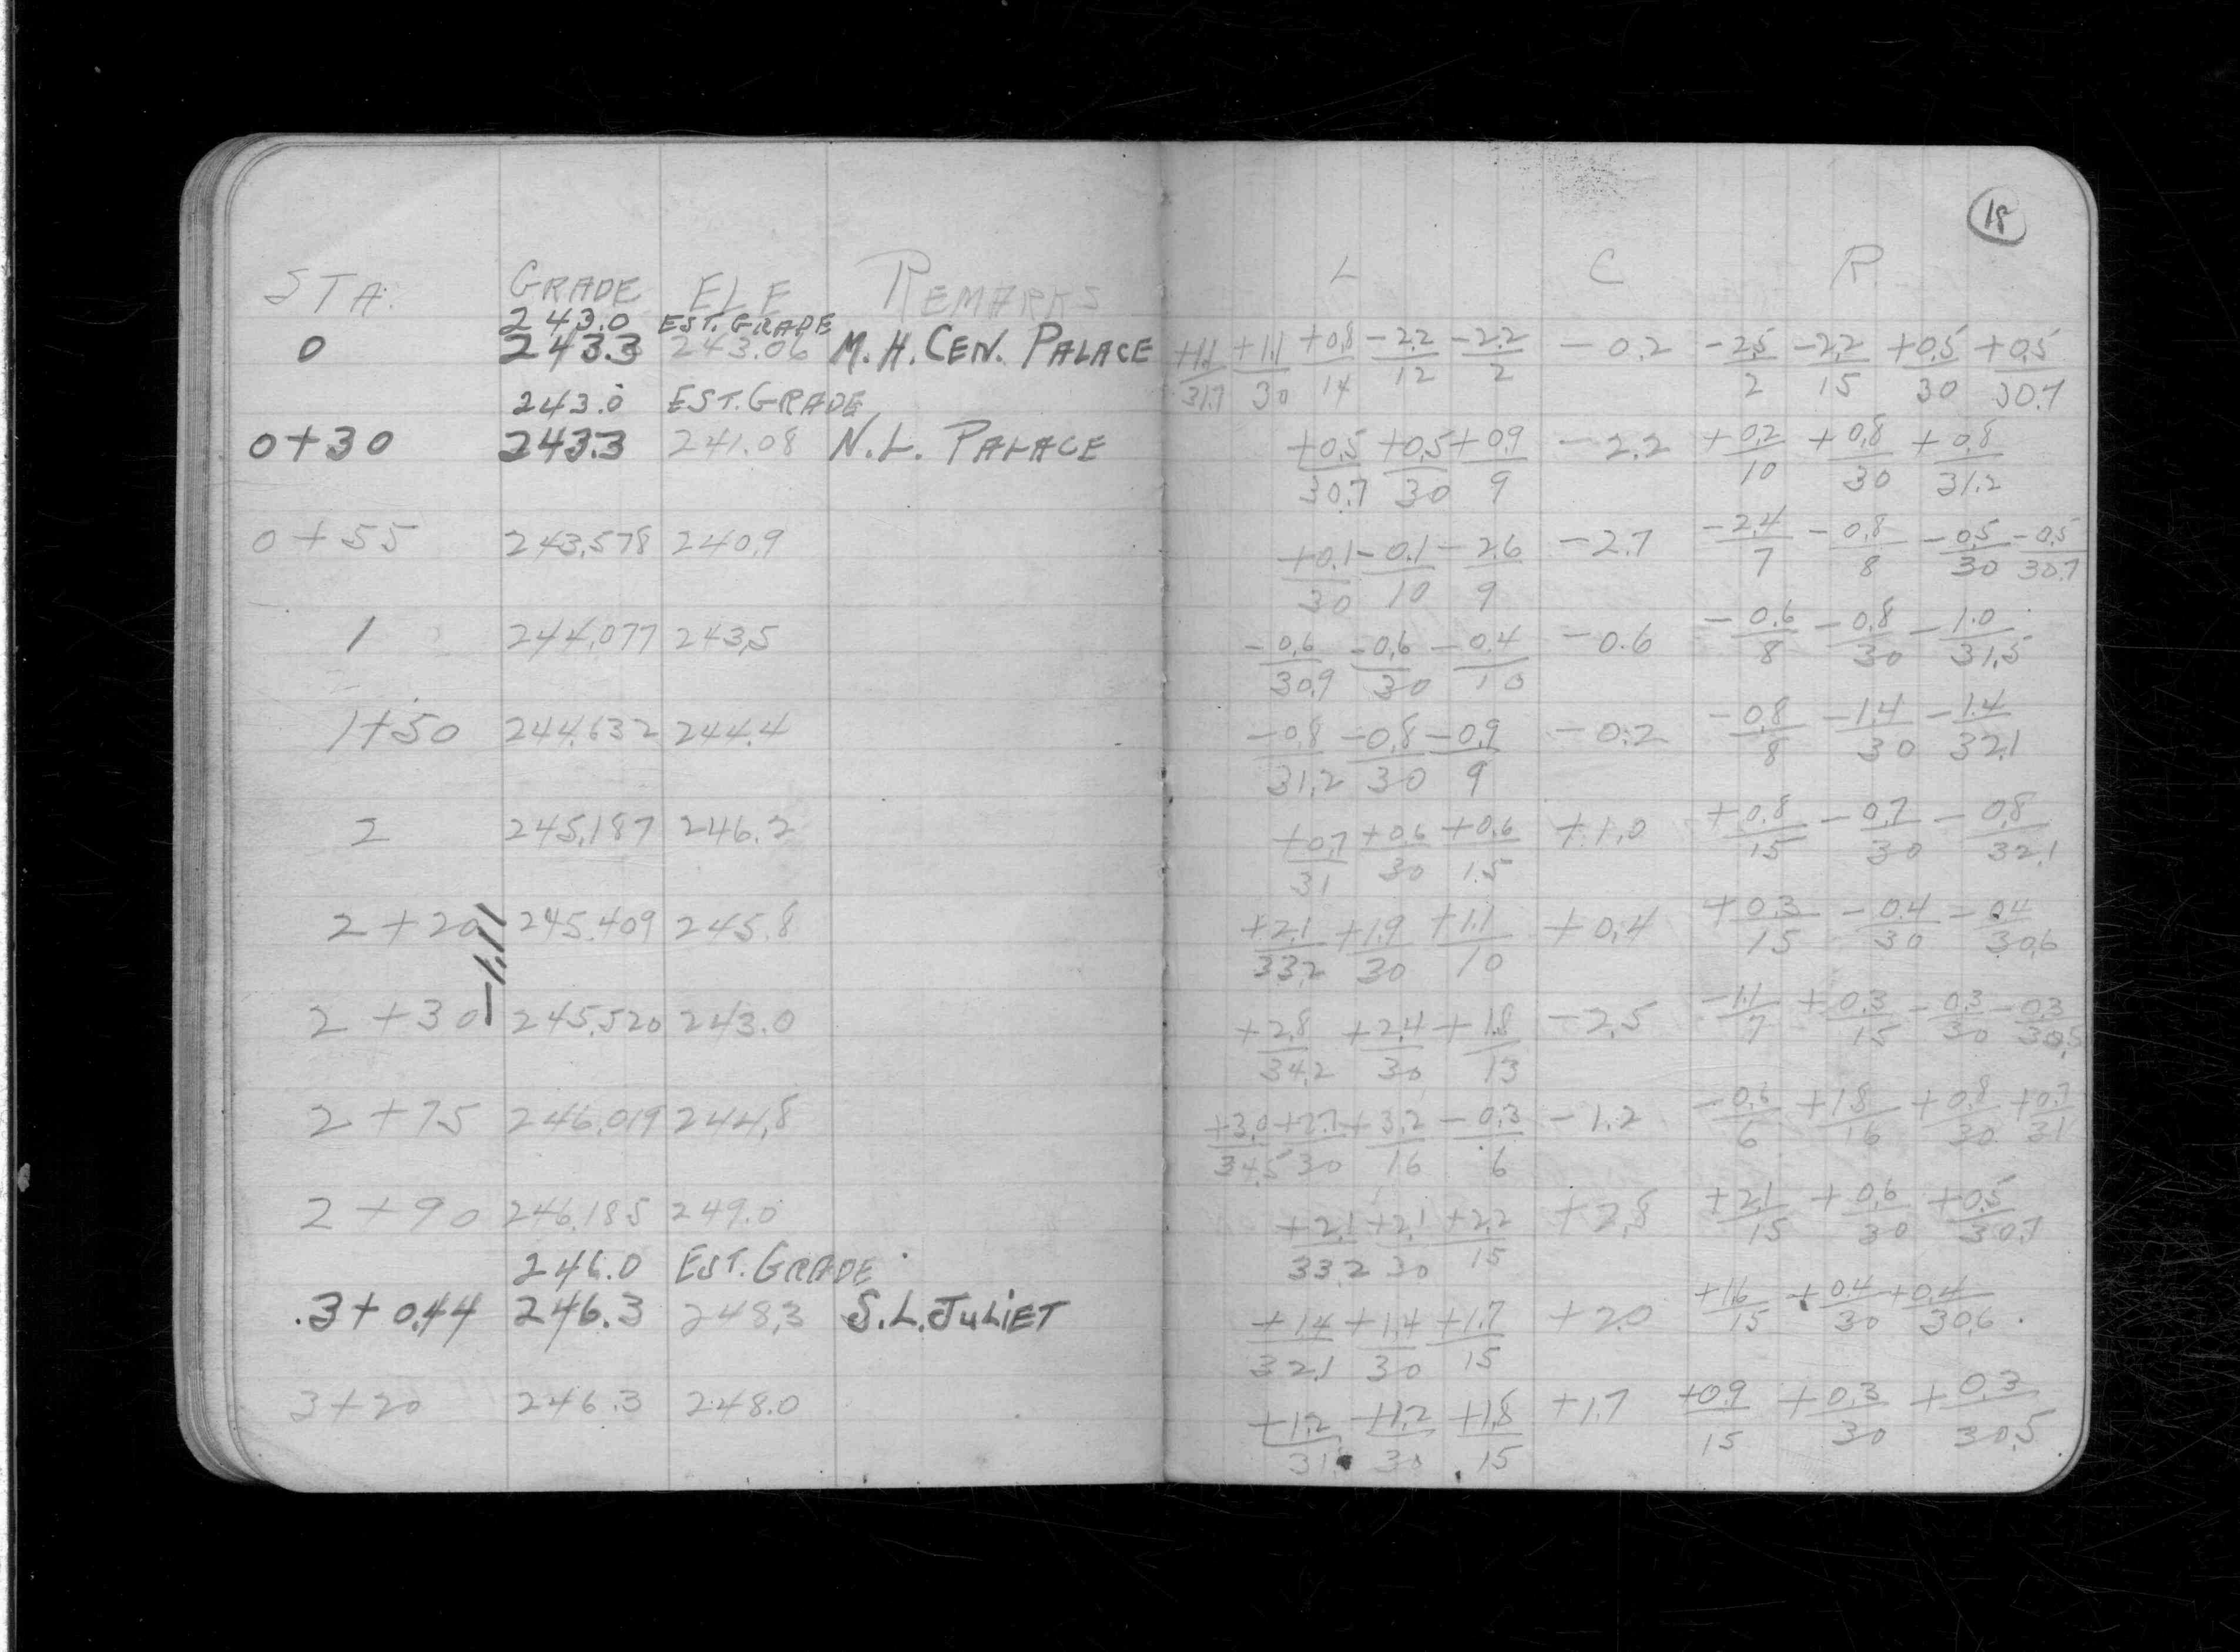 18
STA. GRADE ELE REMARKS L C R
243.0 EST. GRADE
0 243.3 243.06 M.H. CEN. PALACE +1.1/31.7 +1.1/30 +0.8/14 -2.2/12 -2.2/2 -0.2 -2.5/2 -2.2/15 +0.5/30 +0.5/30.7
243.0 EST. GRADE
0+30 243.3 241.08 N.L. PALACE +0.5/30.7 +0.5/30 +0.9/9 -2.2 +0.2/10 +0.8/30 +0.8/31.2
0+55 243.578 240.9 +0.1/30 -0.1/10 -2.6/9 -2.7 -2.4/7 -0.8/8 -0.5/30 -0.5/30.7
1 244.077 243.5 -0.6/30.9 -0.6/30 -0.4/10 -0.6 -0.6/8 -0.8/30 -1.0/31.5
1+50 244.632 244.4 -0.8/31.2 -0.8/30 -0.9/9 -0.2 -0.8/8 -1.4/30 -1.4/32.1
2 245.187 246.2 +0.7/31 +0.6/30 +0.6/15 +1.0 +0.8/15 -0.7/30 -0.8/32.1
2+20 245.409 245.8 +2.1/33.2 +1.9/30 +1.1/10 +0.4 +0.3/15 -0.4/30 -0.4/30.6
-1.11
2+30 245.520 243.0 +2.8/34.2 +2.4/30 +1.8/13 -2.5 -1.1/7 +0.3/15 -0.3/30 -0.3/30.5
2+75 246.019 244.8 +3.0/34.5 +2.7/30 +3.2/16 -0.3/6 -1.2 -0.6/6 +1.8/16 +0.8/30 +0.7/31
2+90 246.185 249.0 +2.1/33.2 +2.1/30 +2.2/15 +2.8 +2.1/15 +0.6/30 +0.5/30.7
246.0 EST. GRADE
3+0.44 246.3 248.3 S.L. JULIET +1.4/32.1 +1.4/30 +1.7/15 +2.0 +1.6/15 +0.4/30 +0.4/30.6
3+20 246.3 248.0 +1.2/31. +1.2/30 +1.8/15 +1.7 +0.9/15 +0.3/30 +0.3/30.5